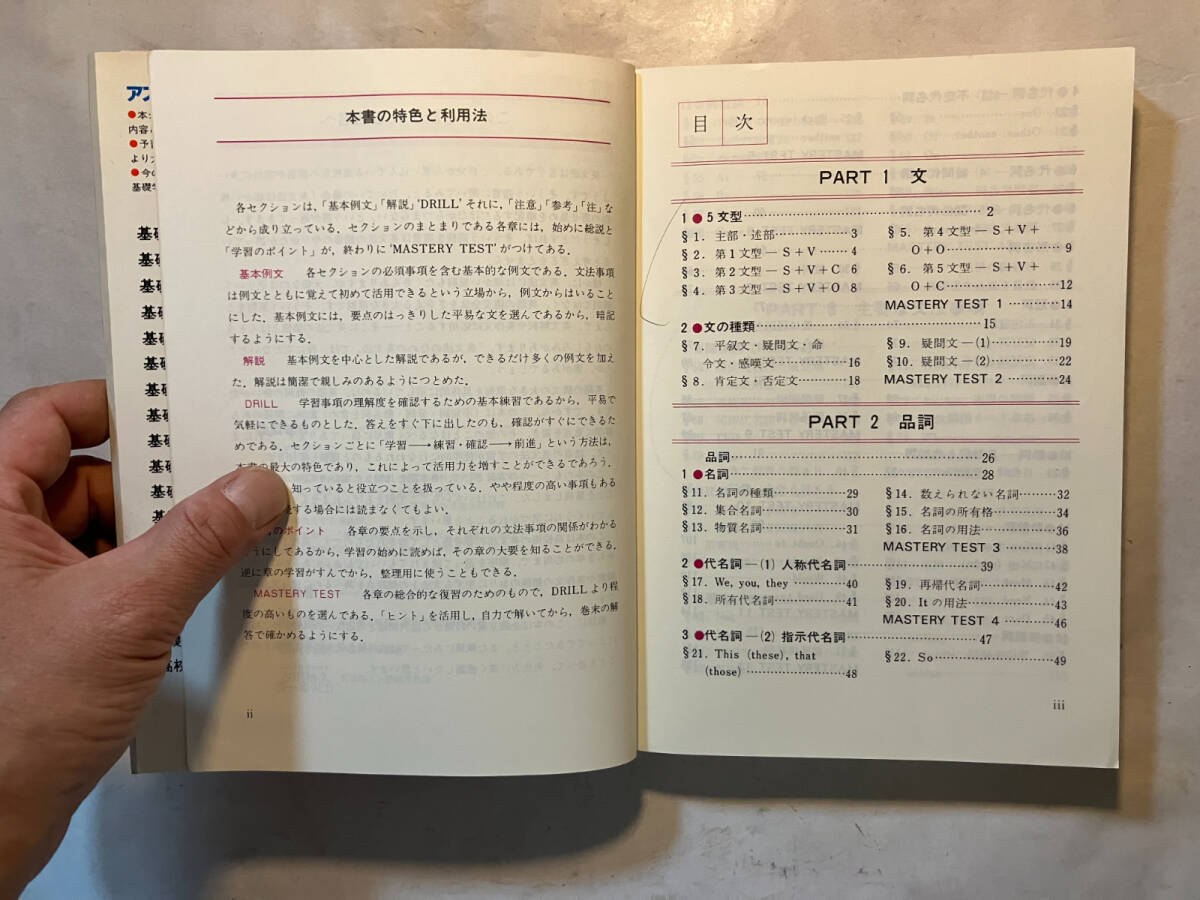 アン
●本
内容
●予
より
●今の
基礎学
基礎
基礎
基礎
基礎
基礎
基礎
基礎
基礎
基礎
基礎
基礎
基礎
高校
本書の特色と利用法
各セクションは,「基本例文」「解説」'DRILL' それに,「注意」「参考」「注」な
どから成り立っている. セクションのまとまりである各章には, 始めに総説と
「学習のポイント」が, 終わりに 'MASTERY TEST' がつけてある.
基本例文 各セクションの必須事項を含む基本的な例文である. 文法事項
は例文とともに覚えて初めて活用できるという立場から, 例文からはいること
にした. 基本例文には, 要点のはっきりした平易な文を選んであるから, 暗記
するようにする.
解説 基本例文を中心とした解説であるが, できるだけ多くの例文を加え
た. 解説は簡潔で親しみのあるようにつとめた.
DRILL 学習事項の理解度を確認するための基本練習であるから, 平易で
気軽にできるものとした. 答えをすぐ下に出したのも, 確認がすぐにできるた
めである. セクションごとに「学習→練習・確認→前進」という方法は,
本書の最大の特色であり, これによって活用力を増すことができるであろう.
知っていると役立つことを扱っている. やや程度の高い事項もある
する場合には読まなくてもよい.
のポイント 各章の要点を示し, それぞれの文法事項の関係がわかる
うにしてあるから, 学習の始めに読めば, その章の大要を知ることができる.
逆に章の学習がすんでから, 整理用に使うこともできる.
MASTERY TEST 各章の総合的な復習のためのもので, DRILL より程
度の高いものを選んである. 「ヒント」を活用し, 自力で解いてから, 巻末の解
答で確かめるようにする.
ii
目次
PART 1 文
1 ●5文型……………………………………2
§1. 主部・述部…………3
§2. 第1文型—S+V……4
§3. 第2文型—S+V+C 6
§4. 第3文型—S+V+O 8
§5. 第4文型—S+V+
O+O………………9
§6. 第5文型—S+V+
O+C………………12
MASTERY TEST 1 …………14
2 ●文の種類……………………………………15
§7. 平叙文・疑問文・命
令文・感嘆文…………16
§8. 肯定文・否定文………18
§9. 疑問文—(1)…………19
§10. 疑問文—(2)…………22
MASTERY TEST 2 …………24
PART 2 品詞
品詞……………………………………26
1 ●名詞……………………………………28
§11. 名詞の種類…………29
§12. 集合名詞……………30
§13. 物質名詞……………31
§14. 数えられない名詞………32
§15. 名詞の所有格…………34
§16. 名詞の用法……………36
MASTERY TEST 3 …………38
2 ●代名詞—(1) 人称代名詞……………………39
§17. We, you, they …………40
§18. 所有代名詞……………41
§19. 再帰代名詞……………42
§20. It の用法………………43
MASTERY TEST 4 …………46
3 ●代名詞—(2) 指示代名詞……………………47
§21. This (these), that
(those) ………………48
§22. So………………………49
iii